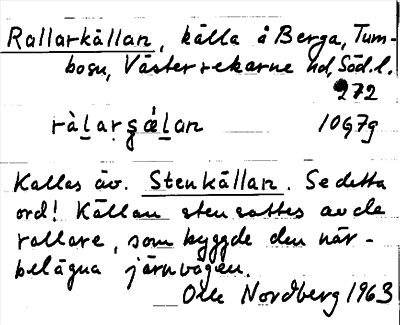 Rallarkällan, källa å Berga, Tum-
bosn, Västerrekarne hd, Söd.l.
272
ràḻaṛʂǽḻan 10G7g
Kallas äv. Stenkällan. Se detta
ord! Källan stensattes av de
rallare, som byggde den när-
belägna järnvägen.
Olle Nordberg 1963